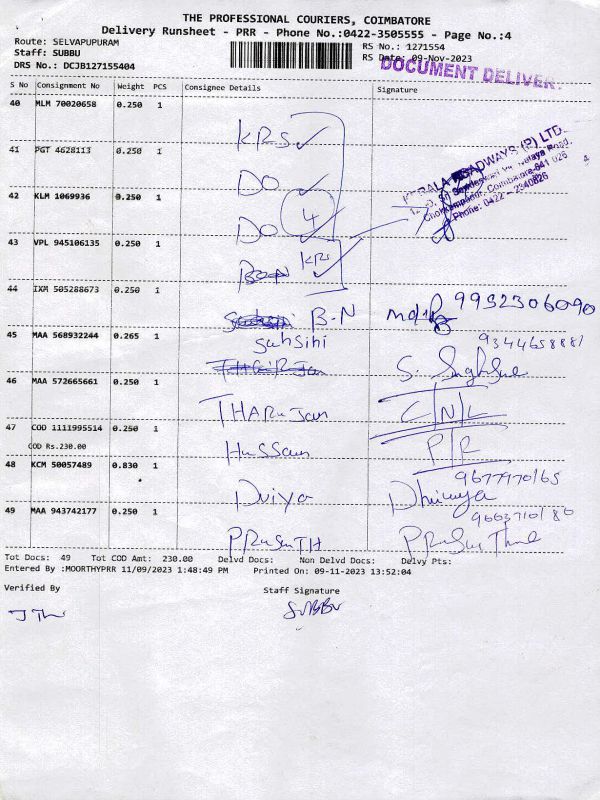 THE PROFESSIONAL COURIERS, COIMBATORE
Delivery Runsheet - PRR - Phone No.:0422-3505555 - Page No.:4
Route: SELVAPUPURAM
Staff: SUBBU
DRS No.: DCJB127155404
RS No.: 1271554
RS Date: 09-Nov-2023
DOCUMENT DELIVER
S No Consignment No Weight PCS Consignee Details Signature
40 MLM 70020658 0.250 1 KRS
41 PGT 4628113 0.250 1 DO
42 KLM 1069936 0.250 1 DO 4
ROADWAYS (P) LTD.
Coimbatore-641 026
Phone: 0422 - 2340826
43 VPL 945106135 0.250 1 KRS
44 IXM 505288673 0.250 1 B-N 9952306090
45 MAA 568932244 0.265 1 9344658881
46 MAA 572665661 0.250 1 THARUJan C/N/L
47 COD 1111995514 0.250 1 Hussain P/R
COD Rs.230.00
48 KCM 50057489 0.830 1 Dviya 9677970165
49 MAA 943742177 0.250 1 PRasanTH 9663710180
Tot Docs: 49 Tot COD Amt: 230.00 Delvd Docs: Non Delvd Docs: Delvy Pts:
Entered By :MOORTHYPRR 11/09/2023 1:48:49 PM Printed On: 09-11-2023 13:52:04
Verified By Staff Signature
SUBBU